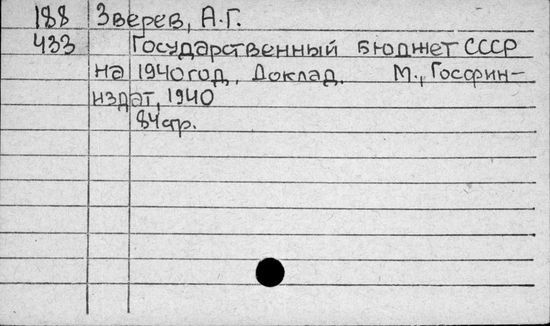 188 Зверев, А.Г.
433 Государственный бюджет СССР
на 1940 год. Доклад. М., Госфин-
издат, 1940
84 стр.